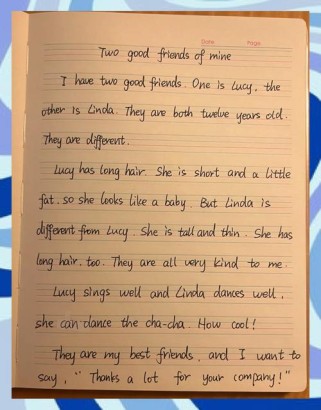 Date Page
Two good friends of mine
I have two good friends. One is Lucy, the
other is Linda. They are both twelve years old.
They are different.
Lucy has long hair. She is short and a little
fat. so she looks like a baby. But Linda is
different from Lucy. She is tall and thin. She has
long hair, too. They are all very kind to me.
Lucy sings well and Linda dances well,
she can dance the cha-cha. How cool!
They are my best friends, and I want to
say, "Thanks a lot for your company!"